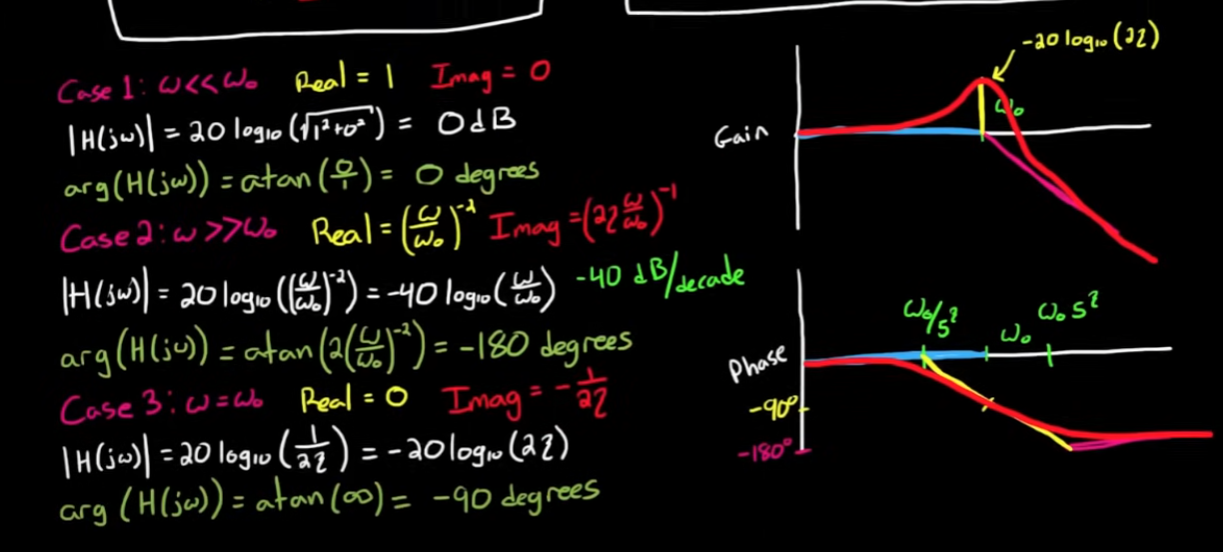 Case 1: ω<<ω₀ Real = 1 Imag = 0
|H(jω)| = 20 log₁₀(√1²+0²) = 0dB
arg(H(jω)) = atan(0/1) = 0 degrees
Case 2: ω>>ω₀ Real = (ω/ω₀)⁻² Imag = (2ζ ω/ω₀)⁻¹
|H(jω)| = 20 log₁₀((ω/ω₀)⁻²) = -40 log₁₀(ω/ω₀) -40 dB/decade
arg(H(jω)) = atan(2(ω/ω₀)⁻²) = -180 degrees
Case 3: ω=ω₀ Real = 0 Imag = -1/2ζ
|H(jω)| = 20 log₁₀(1/2ζ) = -20 log₁₀(2ζ)
arg(H(jω)) = atan(∞) = -90 degrees
-20 log₁₀(2ζ)
ω₀
Gain
ω₀/5^ζ
ω₀
ω₀5^ζ
Phase
-90°
-180°